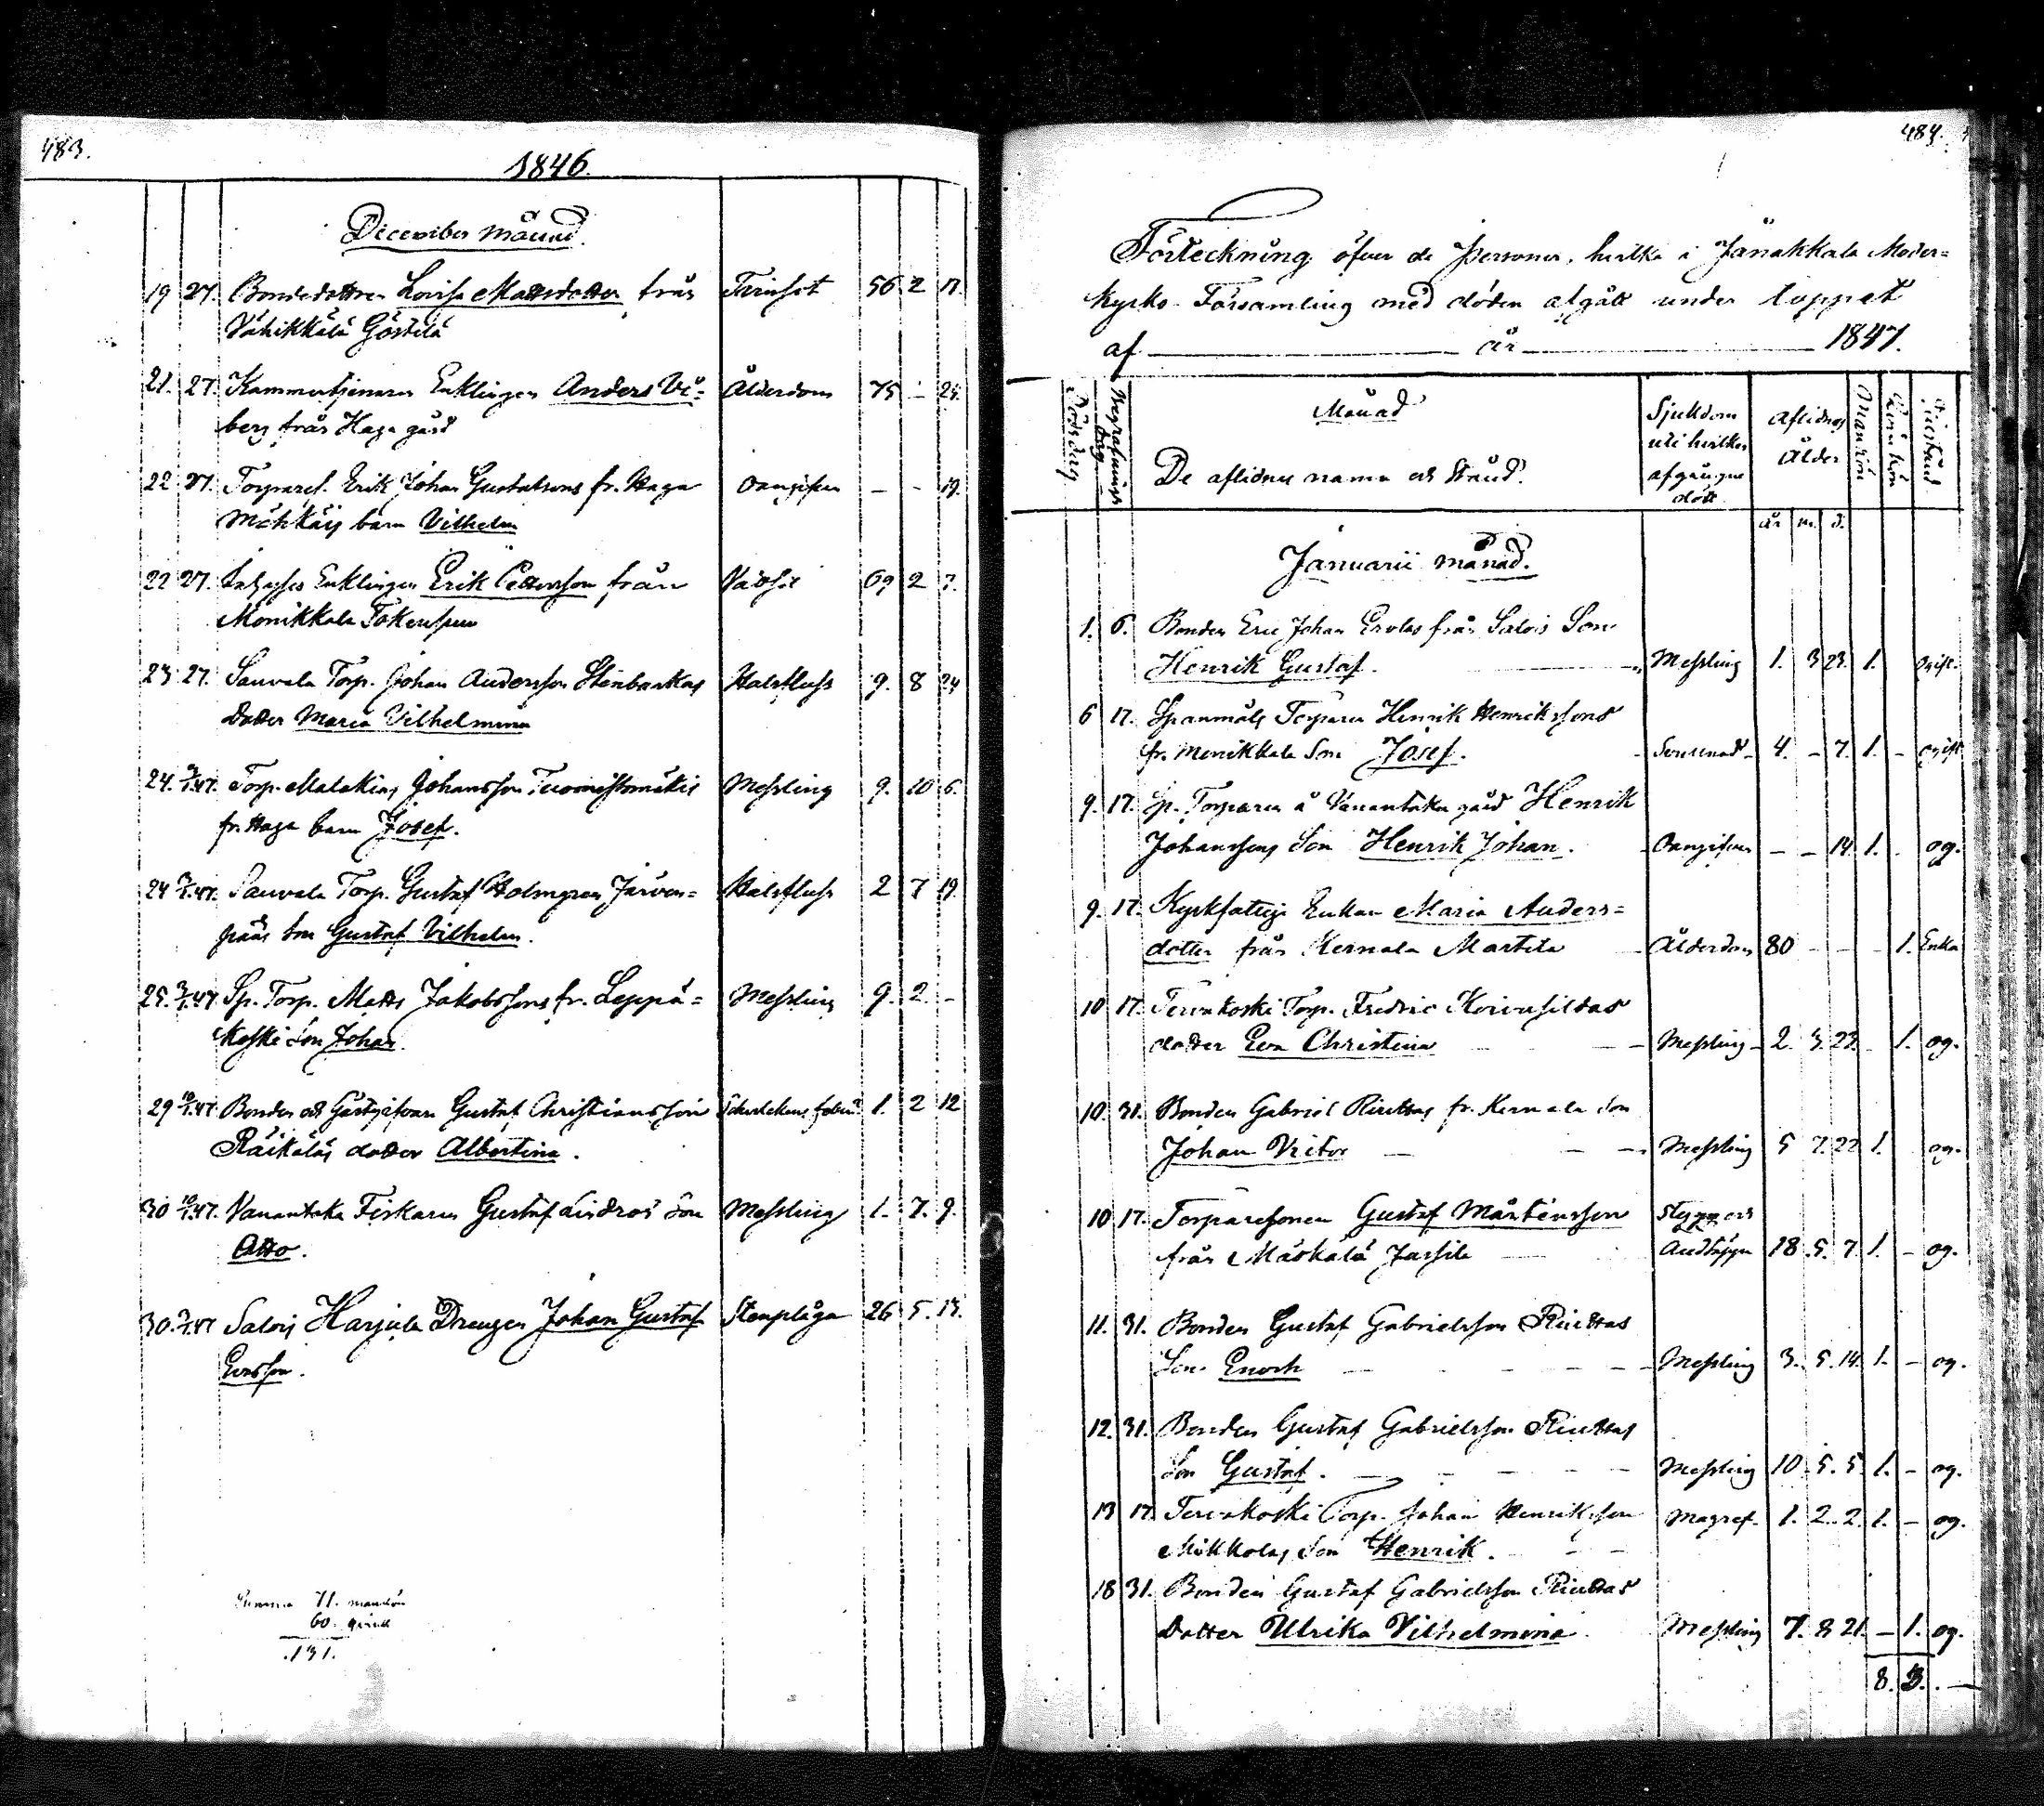 483.
1846.
December månad.
19 27. Bondedottren Lovisa Mattsdotter från Tarmsot 56 2 17.
Vähikkälä Göstilä
21. 27. Kammartjenaren Enklingen Anders Vi= Ålderdom 75 - 24.
berg från Haga gård
22 27. Torpares. Erik Johan Gustafssons fr. Haga oangifven - - 19.
barn Vilhelm
22 27. Enklingen Erik Pettersson från 69 2 7.
Monikkala
23 27. Sauvala Torp. Johan Andersson Stenbackas Halsfluss 9. 8 24
dotter Maria Vilhelmina
24. 3/1.47. Torp. Malakias Johansson Tuomistomäkis Messling 9. 10 6.
fr. Haga barn Josef.
24 3/1.47. Sauvala Torp. Gustaf Holmgren Järven= Halsfluss 2 7 19.
pääs Son Gustaf Vilhelm.
25. 3/1.47 Sp. Torp. Matts Jakobssons fr. Leppä= Messling 9. 2. -
koski Son Johan
29 10/1.47 Bonden och Gästgifvaren Gustaf Christiansson 1. 2 12
Räikäläs dotter Albertina.
30 10/1.47. Vanantaka Fiskaren Gustaf Lindros Son Messling 1. 7. 9.
Otto.
30. 3/1.47 Salois Harjula Drengen Johan Gustaf Stenplåga 26 5. 13.
Ersson.
Summa 71. mankön
60. qvink
131.
484.
Förteckning öfver de Personer, hvilka i Janakkala Moder=
kyrko Församling med döden afgått under loppet
af år 1847.
Dödsdag
Begrafnings dag
Månad
De aflidnes namn och Stånd.
Sjukdom uti hvilken afgångne dött
Aflidnes Ålder
Mankön
Qvinkön
Civilstånd
år m. d.
Januarii månad.
1. 6. Bonden Eric Johan Erolas från Salois Son
Henrik Gustaf. Messling 1. 3 23. 1. ogift.
6 17. Spanmåls Torparen Henrik Henrikssons
fr. Monikkala Son Josef. 4. - 7. 1. - ogift
9. 17. Sp. Torparen å Vanantaka gård Henrik
Johanssons Son Henrik Johan. Oangifven - - 14. 1. og.
9. 17. Kyrkfattige Enkan Maria Anders=
dotter från Kernala Martila Ålderdom 80 - - - 1. Enka
10 17. Tervakoski Torp. Fredric Koivusildas
dotter Eva Christina Messling 2. 3. 23. - 1. og.
10. 31. Bonden Gabriel Riuttas fr. Kernala Son
Johan Victor Messling 5 7. 22 1. og.
10 17. Torparesonen Gustaf Mårtensson Stygn och
från Jussila Andtäppa 18. 5. 7. 1. - og.
11. 31. Bonden Gustaf Gabrielsson Riuttas
Son Enoch Messling 3. 5. 14. 1. - og.
12. 31. Bonden Gustaf Gabrielsson Riuttas
Son Gustaf. Messling 10. 5. 5. 1. - og.
13 17. Tervakoski Torp. Johan Henriksson Magref. 1. 2. 2. 1. - og.
Mikkolas Son Henrik.
18 31. Bonden Gustaf Gabrielsson Riuttas
Dotter Ulrika Vilhelmina. Messling 7. 8 21. - 1. og.
8. 3. -